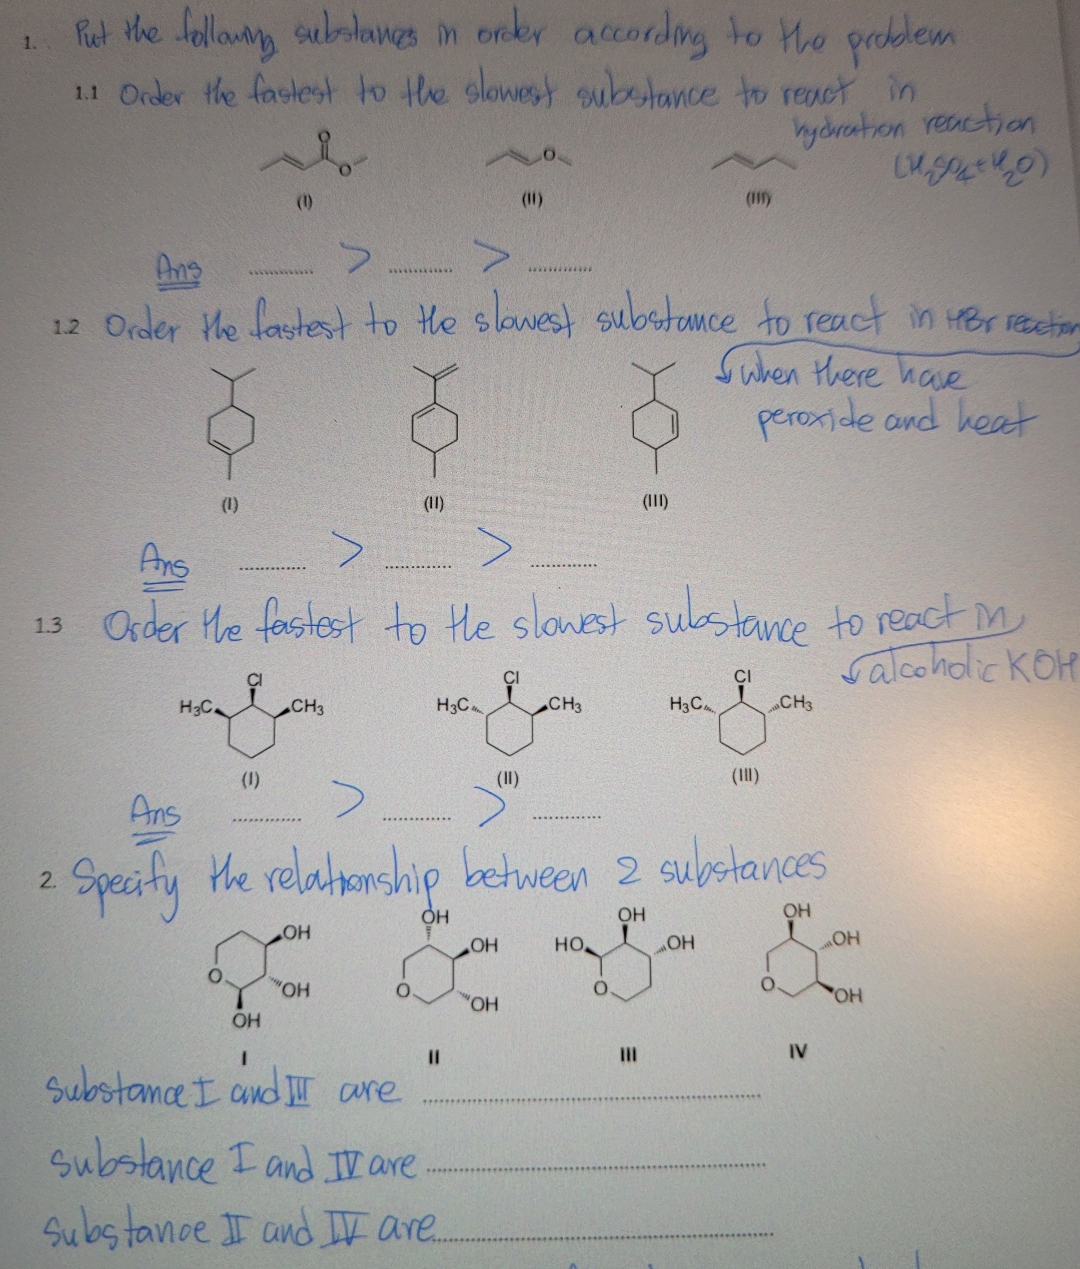 1. Put the following substances in order according to the problem
1.1 Order the fastest to the slowest substance to react in
hydration reaction
(H2SO4+H2O)
O
O
O
(I) (II) (III)
Ans ............ > ............ > ............
1.2 Order the fastest to the slowest substance to react in HBr reaction
when there have
peroxide and heat
(I) (II) (III)
Ans ............ > ............ > ............
1.3 Order the fastest to the slowest substance to react in
alcoholic KOH
Cl Cl Cl
H3C CH3 H3C CH3 H3C CH3
(I) (II) (III)
Ans ............ > ............ > ............
2. Specify the relationship between 2 substances
OH OH OH
OH OH HO OH OH
O O O O
OH OH OH
OH
I II III IV
substance I and III are ............
substance I and IV are ............
substance II and IV are ............